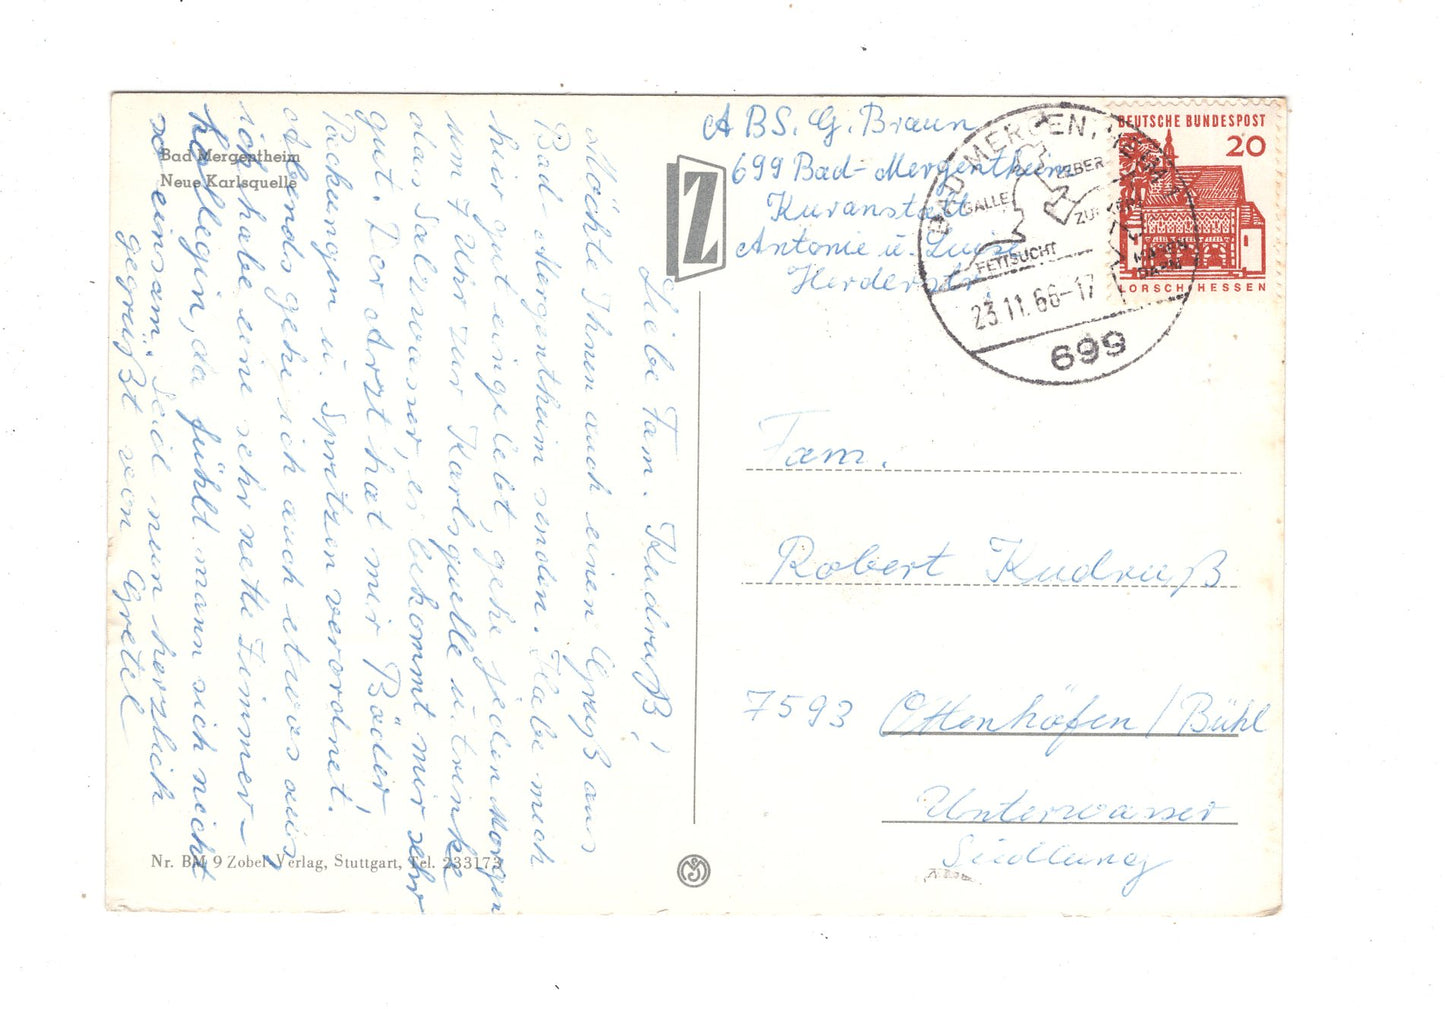 Liebe Fam. Kudruß!
Möchte Ihnen auch einen Gruß aus
Bad-Mergentheim senden. Habe mich
hier gut eingelebt, gehe jeden Morgen
um 7 Uhr zur Karlsquelle u. trinke
das Salzwasser, es bekommt mir sehr
gut. Der Arzt hat mir Bäder
Packungen u. Spritzen verordnet.
abends gehe ich auch etwas aus
ich habe eine sehr nette Zimmer-
kollegin, da fühlt mann sich nicht
so einsam. Seid nun herzlich
gegrüßt von Gretel
Bad Mergentheim
Neue Karlsquelle
Nr. BM 9 Zobel Verlag, Stuttgart, Tel. 233173
Z
ABS. G. Braun
699 Bad-Mergentheim
Kuranstalt
Antonie u. Luise
Herderstr.
BAD MERGENTHEIM
LEBER
GALLE
ZUCKER
FETTSUCHT
MAGEN
DARM
23.11.66-17
699
DEUTSCHE BUNDESPOST
20
LORSCH/HESSEN
Fam.
Robert Kudruß
7593 Ottenhöfen/Bühl
Unterwasser
Siedlung